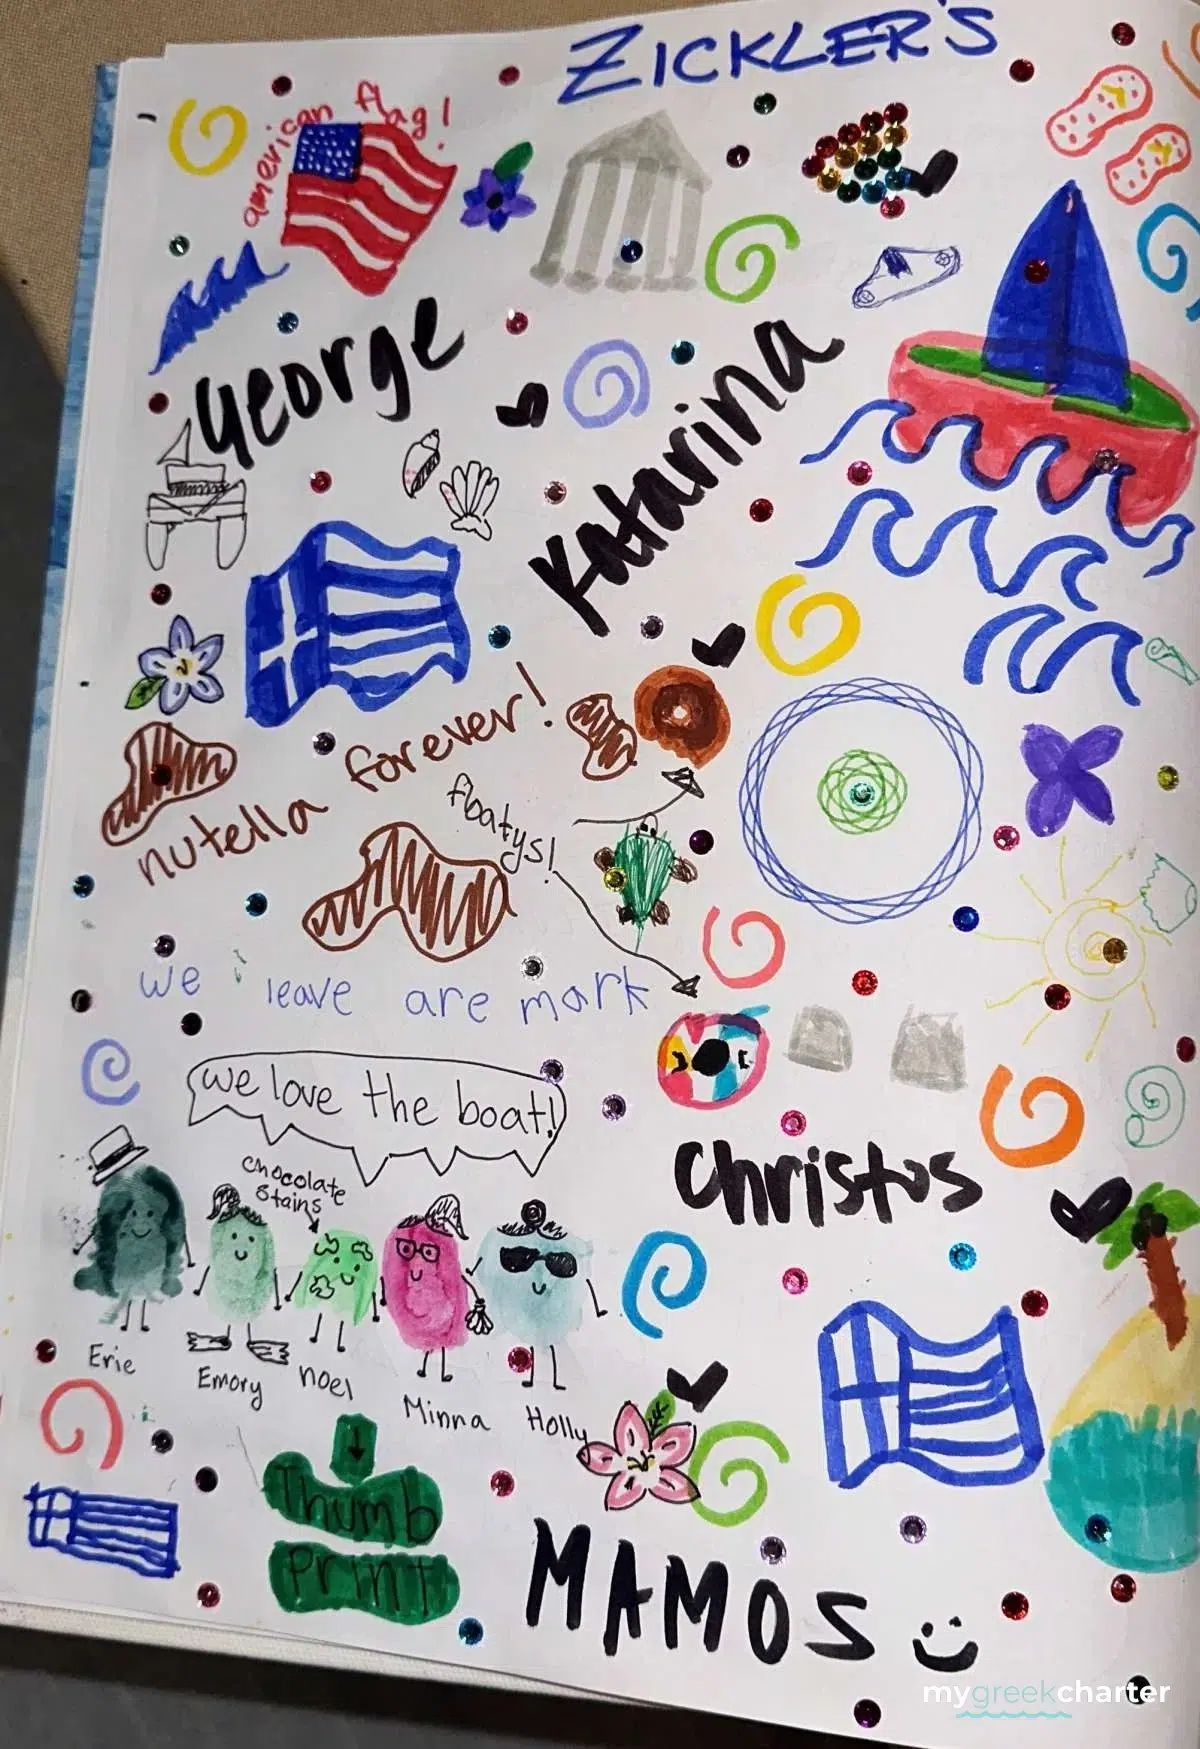 ZICKLER'S
american flag!
George
Katarina
nutella forever!
floatys!
we leave are mark
we love the boat!
chocolate
stains
Christos
Erie
Emory
noel
Minna
Holly
Thumb
print
MAMOS
mygreekcharter